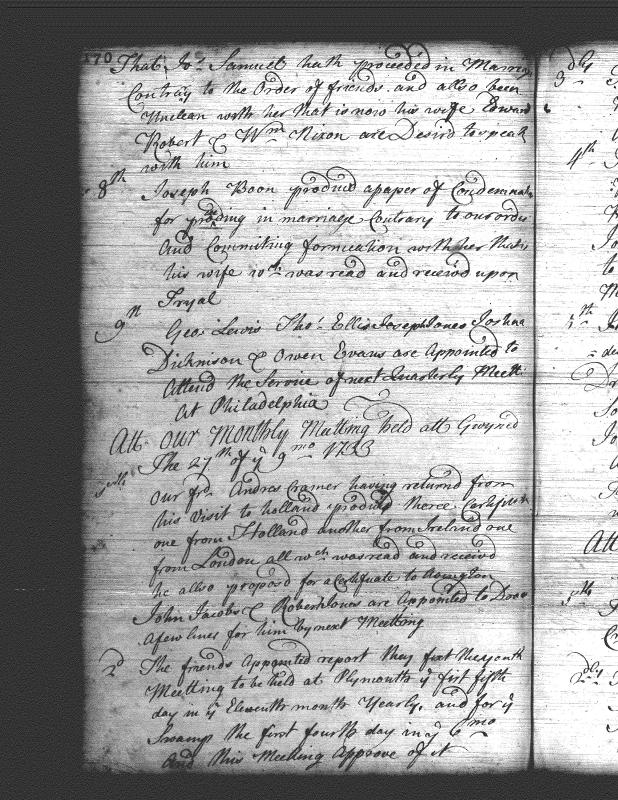 170 That Jos. Samuel hath proceeded in Marriag
Contray to the Order of friends. and also been
Unclean with her that is now his wife Edward
Robert & Wm Nixon are Desird to speak
with him
8th Joseph Boon producd a paper of Condemnati
for proseding in marriage Contrary to our order
And Commiting fornication with her thats
his wife wch was read and receivd upon
Tryal
9th Geo: Lewis Thos: Ellis Joseph Jones Joshua
Dickinson & Owen Evans are Appointed to
Attend the Service of next Quarterly Meett:
at Philadelphia
Att our Monthly Meeting held att Gwyned
The 27th of ye 9mo 1733
our frd. Andrew Cramer having returnd from
his Visit to holland producd three Certificats
one from Holland another from Ireland one
from London all wch was read and receivd
he also proposd for a Certificate to Abington
John Jacobs & Robert Jones are Appointed to Draw
a few lines for him by next Meeting
2d The friends Appointed report they fixt the youth
Meetting to be held at Plymouth ye first fifth
day in ye Eleventh month Yearly, and for ye
Swamp the first fourth day in ye 6mo
And this Meeting Approve of it
3dly
4th
5th
Att
2dly